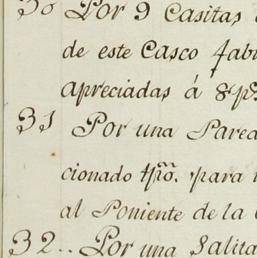 30 Por 9 Casitas
de este Casco fab
apreciadas á 8 ps
31 Por una Pared
cionado tpõ. para
al Poniente de la
32.. Por una Salita